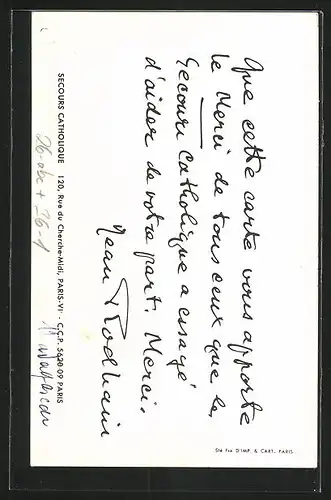 Que cette carte vous apporte
le Merci de tous ceux que le
Secours Catholique a essayé
d'aider de votre part. Merci.
Jean Rodhain
SECOURS CATHOLIQUE 120, Rue du Cherche-Midi, PARIS-VIᵉ - C.C.P. 5620-09 PARIS
Dté Fse D'IMP & CART. PARIS